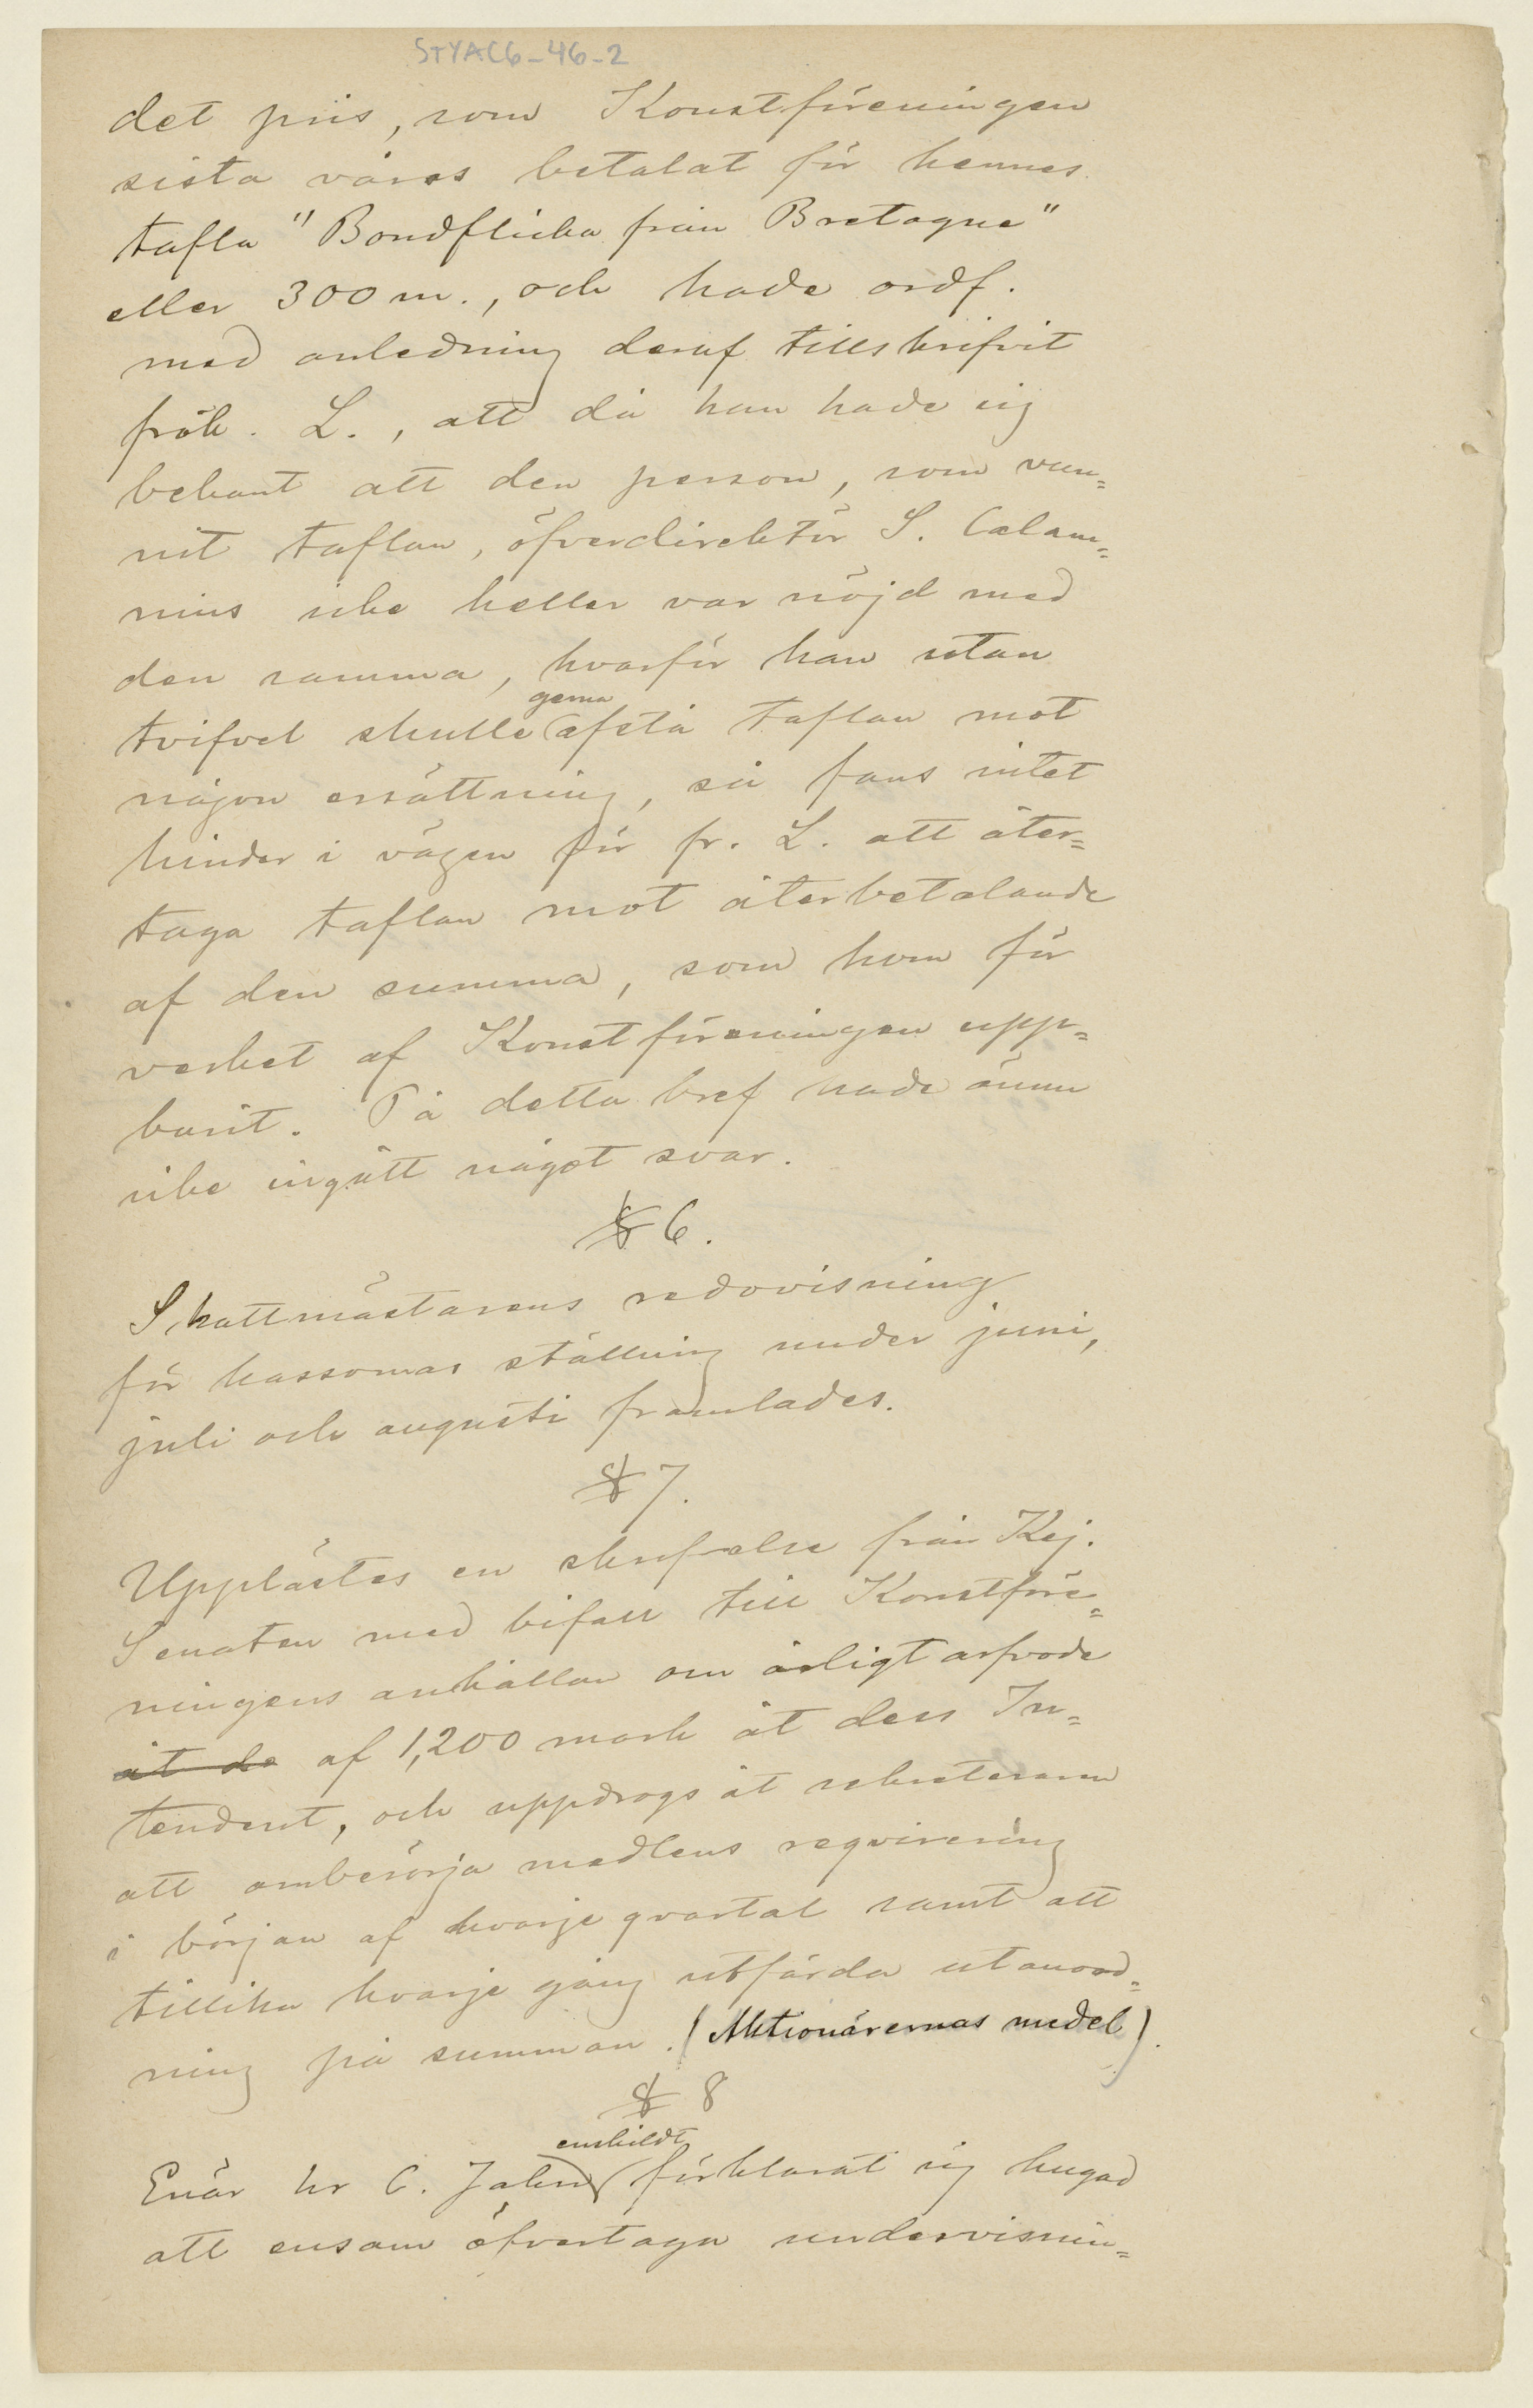 STYAC6-46-2
det pris, som Konstföreningen
sista våras betalat för hennes
tafla "Bondflicka från Bretagne"
eller 300 m., och hade ordf.
med anledning deraf tillskrifvit
frök. L., att då han hade sig
bekant att den person, som vun=
nit taflan, öfverdirektör S. Calam=
nius icke heller var nöjd med
den samma, hvarför han utan
tvifvel skulle gerna afstå taflan mot
någon ersättning, så fans intet
hinder i vägen för fr. L. att åter=
taga taflan mot återbetalande
af den summa, som hon för
verket af Konstföreningen upp=
burit. På detta bref hade ännu
icke ingått något svar.
§ 6.
Skattmästarens redovisning
för kassornas ställning under juni,
juli och augusti framlades.
§ 7.
Upplästes en skrifvelse från Kej.
Senaten med bifall till Konstföre=
ningens anhållan om årligt arfvode
åt de af 1,200 mark åt dess In=
tendent, och uppdrogs åt sekreteraren
att ombesörja medlens reqvirering
i början af hvarje qvartal samt att
tillika hvarje gång utfärda utanord=
ning på summan. (Aktionärernas medel).
§ 8
Enär hr C. Jahn enskildt förklarat sig hugad
att ensam öfvertaga undervisnin=